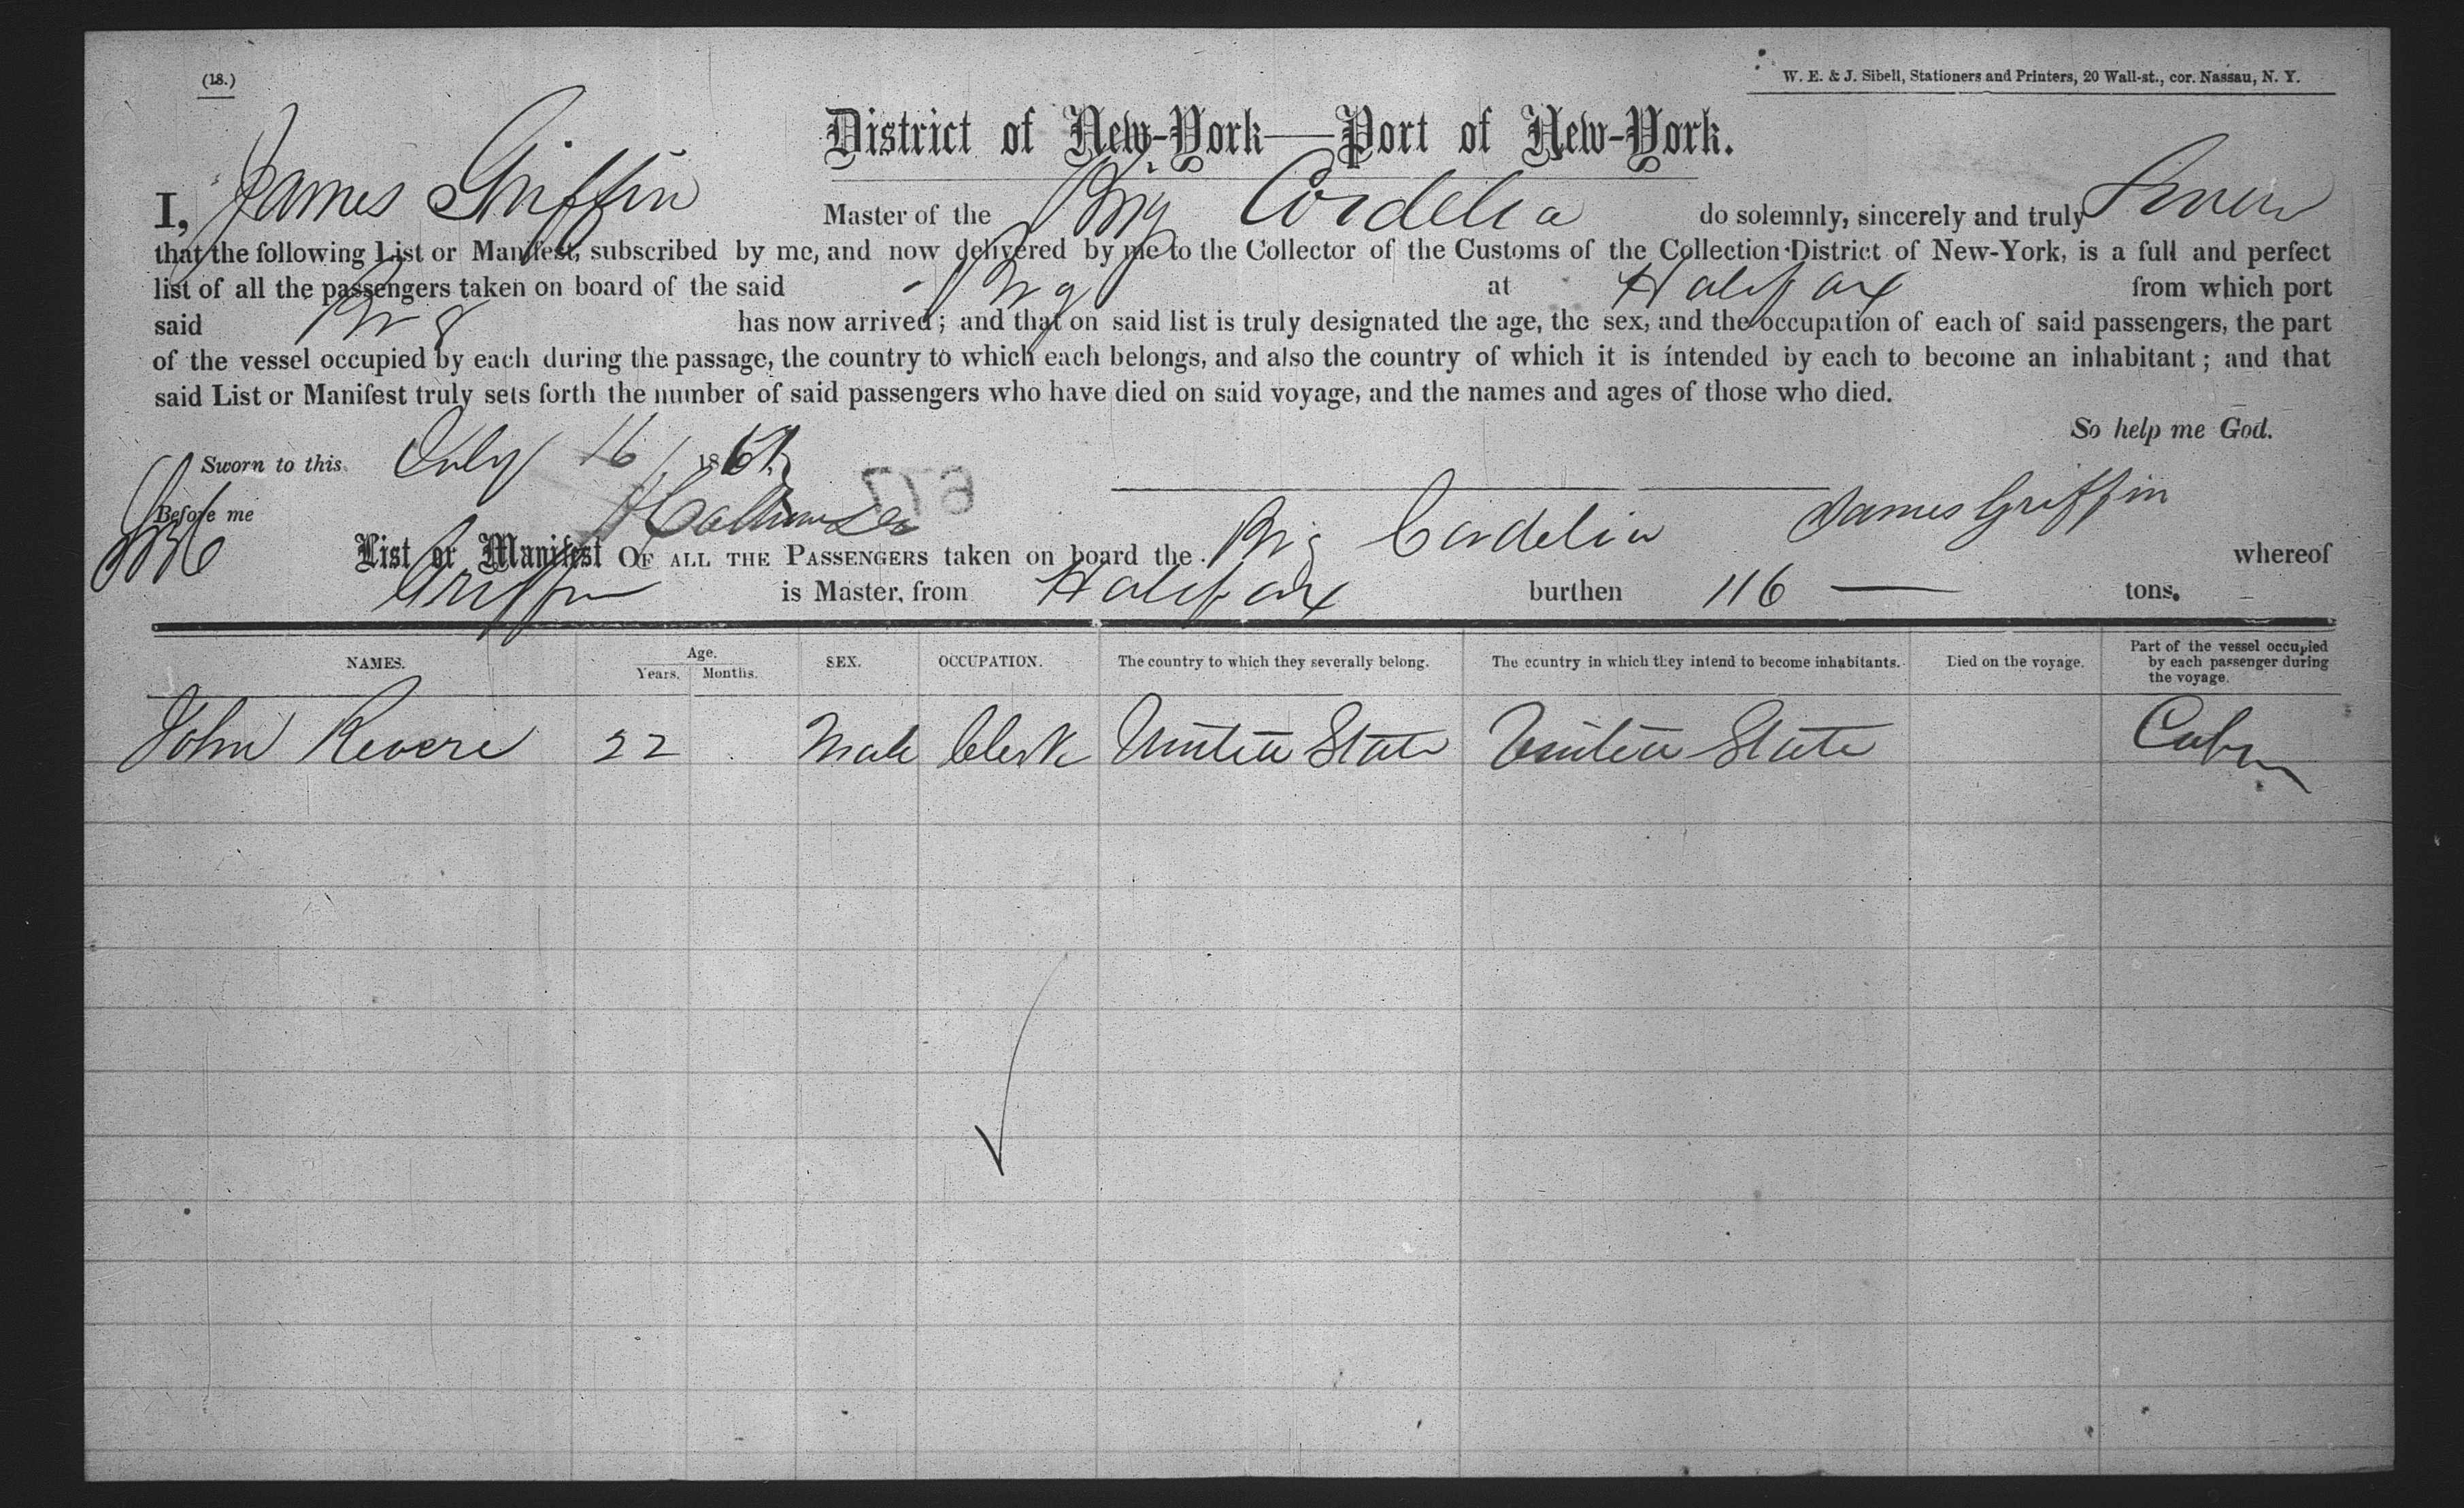 (18.)
W. E. & J. Sibell, Stationers and Printers, 20 Wall-st., cor. Nassau, N. Y.
District of New-York—Port of New-York.
I, James Griffin Master of the Brig Cordelia do solemnly, sincerely and truly Swear
that the following List or Manifest, subscribed by me, and now delivered by me to the Collector of the Customs of the Collection District of New-York, is a full and perfect
list of all the passengers taken on board of the said Brig at Halifax from which port
said Brig has now arrived; and that on said list is truly designated the age, the sex, and the occupation of each of said passengers, the part
of the vessel occupied by each during the passage, the country to which each belongs, and also the country of which it is intended by each to become an inhabitant; and that
said List or Manifest truly sets forth the number of said passengers who have died on said voyage, and the names and ages of those who died.
So help me God.
Sworn to this July 16 186
677
Before me
James Griffin
List or Manifest OF ALL THE PASSENGERS taken on board the Brig Cordelia whereof
Griffin is Master, from Halifax burthen 116 — tons.
NAMES. Age. Years. Months. SEX. OCCUPATION. The country to which they severally belong. The country in which they intend to become inhabitants. Died on the voyage. Part of the vessel occupied by each passenger during the voyage.
John Revere 22 Male Clerk United State United State Cabin